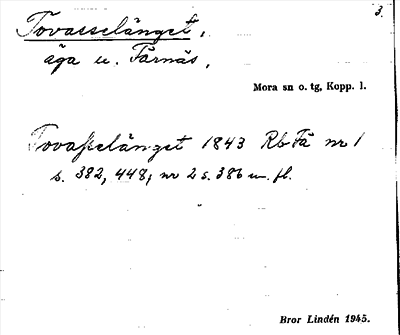 3.
Tovasselänget,
äga u. Färnäs,
Mora sn o. tg, Kopp. l.
Tovasselänget 1843 Rb Fä nr 1
s. 382, 448, nr 2 s. 386 m. fl.
Bror Lindén 1945.